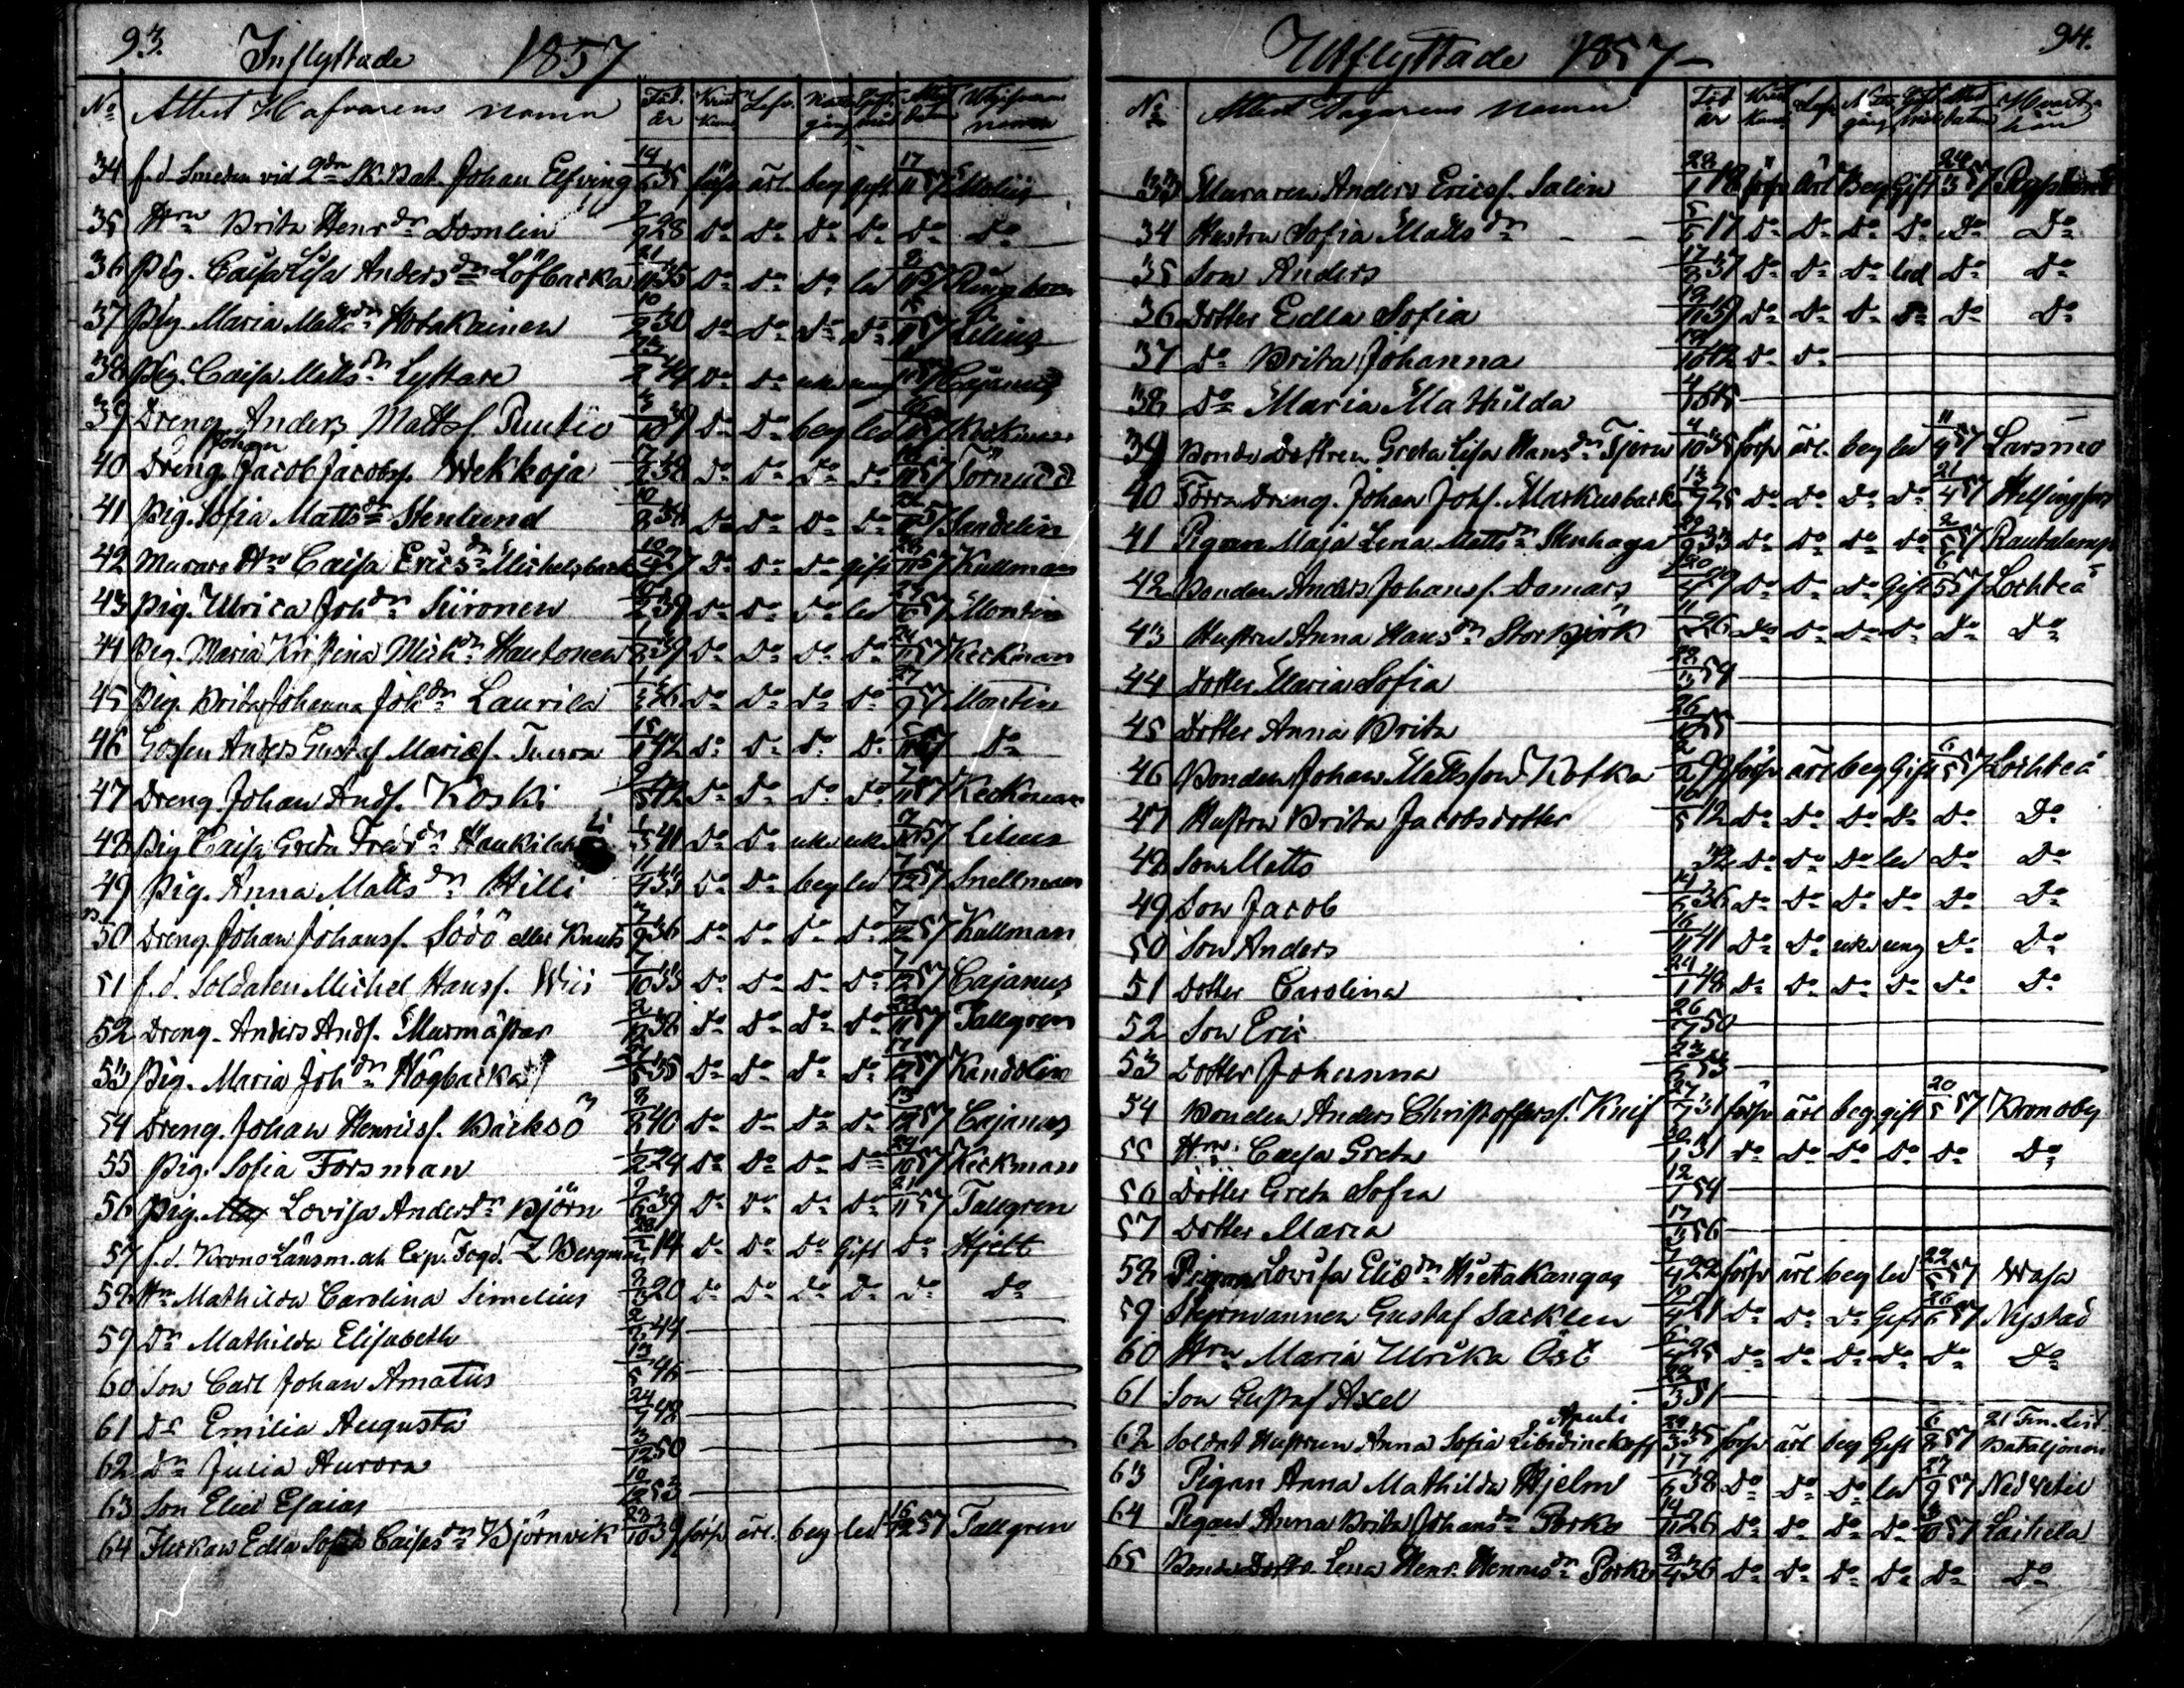 93.
Inflyttade 1857
No Attest Hafvarens namn Föd. år Krist. kun. Lefv. Natt. gång Gift. Att. datum namn
34 f.d. Smeden vid 2dra Sk. Bat. Johan Elfving 14/6 35 förs. ärl. beg gift 17/11 57
35 Hrn Brita Henrsdr Domlin 2/9 28 Do Do Do Do Do Do
36 Pig. Caisa Lisa Andersdn Löfbacka 21/11 35 Do Do Do led 2/11 57 Ringbom
37 Pig. Maria Mattsdn Hotakainen 10/2 30 Do Do Do Do 11 57 Lilius
38 Pig. Caisa Mattsdn Lyttare 2 44 Do Do uk ung 11 57 Cajanus
39 Dreng. Anders Mattss. Runtio 3/10 39 Do Do beg led 57 Keckman
40 Dreng. Johan Jacob Jacobss. Wekkoja 17/2 38 Do Do Do Do 11 57 Törnudd
41 Pig. Sofia Mattsdn Stenlund 10/8 38 Do Do Do Do 11 57 Sandelin
42 Murare Hrn Caisa Ericsdn Mickelsback 10/9 27 Do Do Do gift 11 57 Kullman
43 Pig. Ulrica Johdn Siironen 2 39 Do Do Do led 6 57 Montin
44 Pig. Maria Kristina Mickdn Hautonen 1/8 39 Do Do Do Do 24/11 57 Keckman
45 Pig. Brita Johanna Johdn Laurila 1/3 36 Do Do Do Do 27/9 57 Montin
46 Gossen Anders Gustaf Mariæs. Tuura 15/1 42 Do Do Do Do 57 Do
47 Dreng Johan Ands. Koski 9/5 42 Do Do Do Do 7/11 57 Keckman
48 Pig Caisa Greta Fredrdn Haukilahti 1/5 41 Do Do uk uk 57 Lilius
49 Pig. Anna Mattsdn Hilli 11/4 33 Do Do beg led 7/12 57 Snellman
50 Dreng. Johan Johanss. Södö eller Knuts 7/9 36 Do Do Do Do 7/12 57 Kullman
51 f.d. Soldaten Michel Hanss. Wiis 7/10 33 Do Do Do Do 7/12 57 Cajanus
52 Dreng. Anders Ands. Murmästar 2/12 38 Do Do Do Do 11 57 Tallgren
53 Pig. Maria Johdn Högbacka 5 35 Do Do Do Do 17/12 57 Kandolin
54 Dreng. Johan Henricss. Bäcksö 8/2 40 Do Do Do Do 13/12 57 Cajanus
55 Pig. Sofia Forsman 1/2 24 Do Do Do Do 29/10 57 Keckman
56 Pig. Lovisa Andersdn Björn 9/6 39 Do Do Do Do 21/11 57 Tallgren
57 f.d. Krono Länsm. och Exp. Fogd. Z Bergman 14 Do Do Do Gift Do Hjelt
58 Hrn Mathilda Carolina Simelius 8/3 20 Do Do Do Do Do Do
59 Dr Mathilda Elisabeth 2/2 44
60 Son Carl Johan Amatus 13/5 46
61 Dr Emilia Augusta 24/7 48
62 Dr Julia Aurora 3/12 50
63 Son Eliel Esaias 10/12 53
64 Flickan Edla Sofia Caisasdn Björnvik 23/10 39 förs ärl. beg led 16/12 57 Tallgren
94.
Utflyttade 1857
No Attest Tagarens namn Föd år Krist. kun. Lefv. Natt gång Gift Att. datum Hvart hän
33 Muraren Anders Ericss. Salin 22/1 18 förs Ärl Beg Gift 24/3 57
34 Hustru Sofia Mattsdn 5/5 17 Do Do Do Do Do Do
35 Son Anders 17/8 37 Do Do Do led Do Do
36 Dotter Edla Sofia 19/11 39 Do Do Do Do Do Do
37 Do Brita Johanna 19/10 42 Do Do
38 Do Maria Mathilda 4/1 45
39 Bonde Dottren Greta Lisa Hansdn Tjern 4/10 35 förs ärl. beg led 11/4 57 Larsmo
40 Torra Dreng. Johan Johs. Markusback 13/9 25 Do Do Do Do 21/4 57 Helsingfors
41 Pigan Maja Lena Mattsdn Stenhaga 29/9 33 Do Do Do Do 2/5 57 Rautalamp
42 Bonden Anders Johanss. Domars 20/4 29 Do Do Do Gift 6/5 57 Lochteå
43 Hustru Anna Hansdn Storbjörk 11/5 26 Do Do Do Do Do Do
44 Dotter Maria Sofia 28/3 54
45 Dotter Anna Brita 26/10 55
46 Bonden Johan Mattsson Kotka 2/2 99 förs ärl beg Gift 6/5 57 Lochteå
47 Hustru Brita Jacobsdotter 16/5 12 Do Do Do Do Do Do
48 Son Matts 32 Do Do Do led Do Do
49 Son Jacob 14/6 36 Do Do Do Do Do Do
50 Son Anders 16/11 41 Do Do uk ung Do Do
51 Dotter Carolina 24/1 48 Do Do Do Do Do Do
52 Son Eric 26/7 50
53 Dotter Johanna 23/6 53
54 Bonden Anders Christofferss. Knif 27/7 31 förs ärl beg gift 20/5 57 Kronoby
55 Hrn Caisa Greta 30/1 31 Do Do Do Do Do Do
56 Dotter Greta Sofia 12/1 54
57 Dotter Maria 17/3 56
58 Pigan Lovisa Eliædn Hietakangas 7/4 22 förs ärl beg led 22/5 57 Wasa
59 Styrmannen Gustaf Sacklen 19/4 21 Do Do Do Gift 26/6 57 Nystad
60 Hrn Maria Ulrika Öst 5/4 25 Do Do Do Do Do Do
61 Son Gustaf Axel 22/3 51
62 Soldat Hustrun Anna Sofia Libidinekoff Apuli 29/3 35 förs ärl beg Gift 6/8 57 21 Fin. Lin. Bataljonen
63 Pigan Anna Mathilda Hjelm 17/6 38 Do Do Do led 23/9 57 Nedvetil
64 Pigan Anna Brita Johansdn Porko 14/11 26 Do Do Do Do 3/10 57 Laihela
65 Bonde Dottr. Lena Henr. Hennosdn Porko 8/4 36 Do Do Do Do Do Do